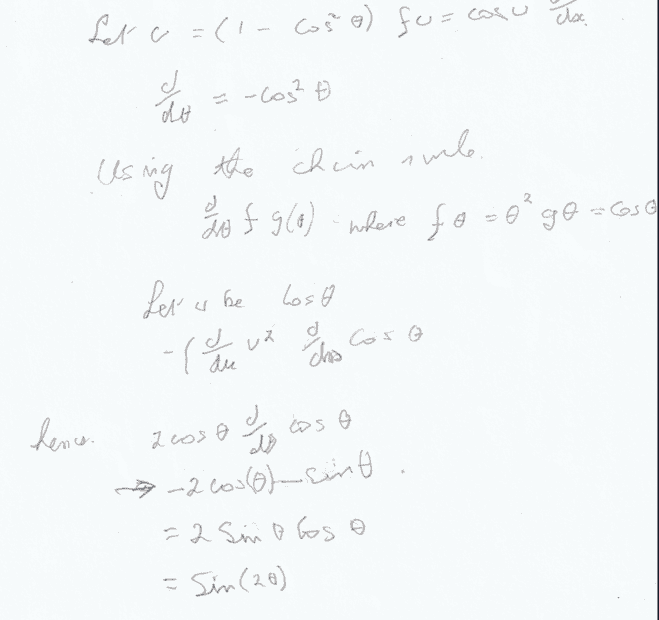 Let u = (1 - cos² θ) fu = cos u d/dx
d/dθ = -cos² θ
Using the chain rule.
d/dθ f g(θ) where f θ = θ² gθ = cos θ
Let u be cos θ
-( d/du u² d/dθ cos θ
hence. 2 cos θ d/dθ cos θ
→ -2 cos(θ) - sin θ .
= 2 sin θ cos θ
= sin(2θ)